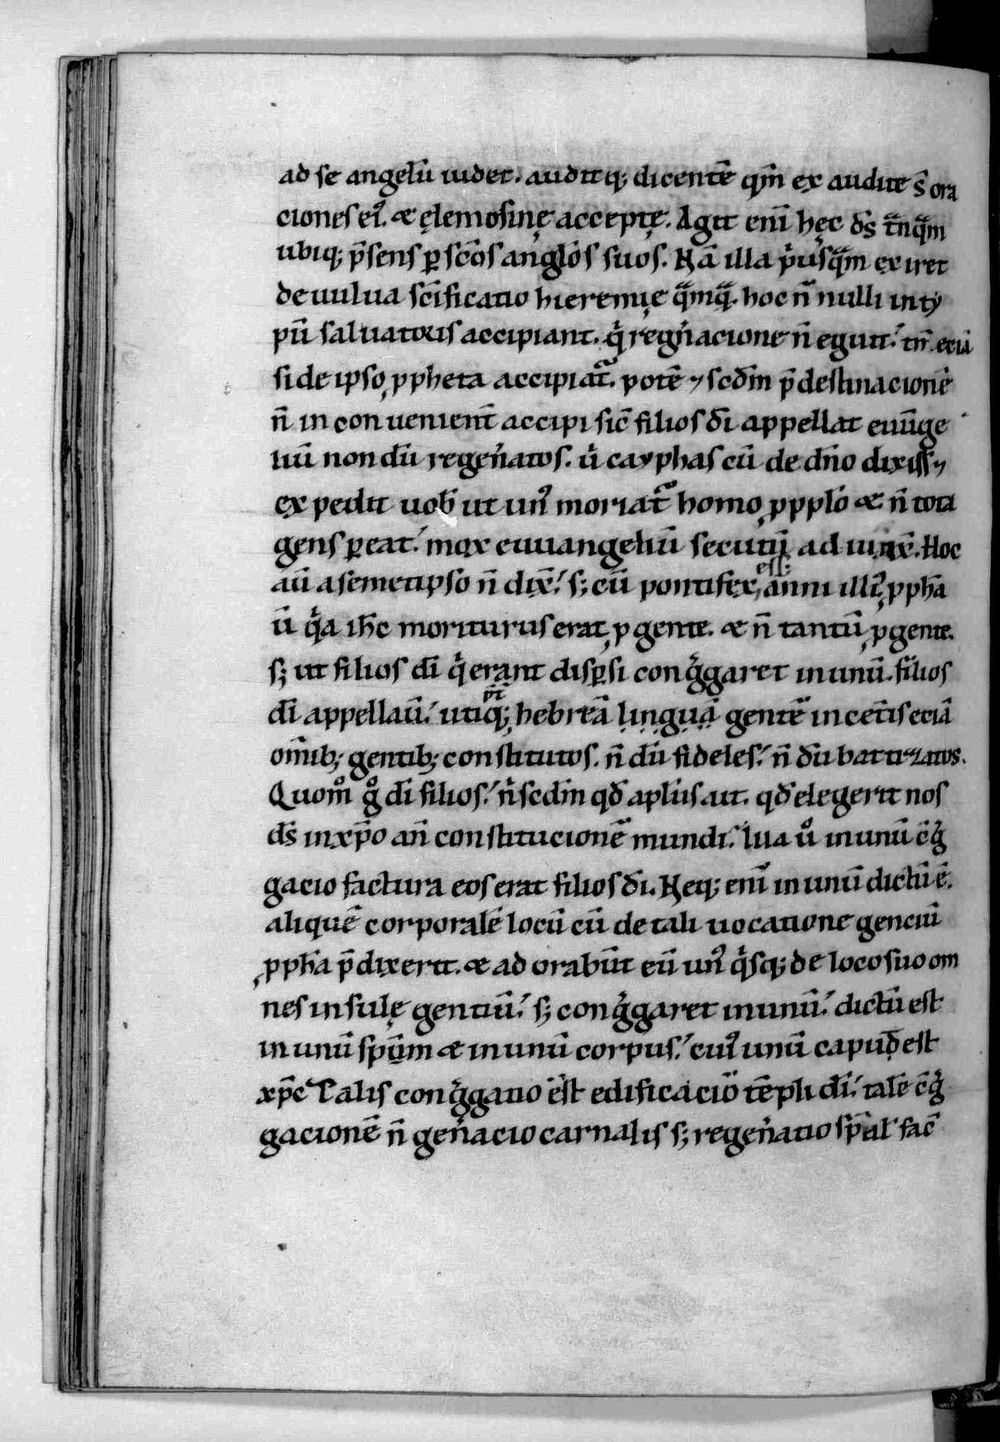 ad se angelū uidet. auditq; dicentē qm̄ ex audite s̄ ora
ciones ei᷒. & ęlemosinę acceptę. Agit enī hęc ds̄ tanqͣm
ubiq; p̄sens ꝑ scōs anglōs suos. Nā illa pͥusqͣm exiret
de uulua scīficatio hieremię qͣmqͣ. hoc n̄ nulli in ty
pū saluatoris accipiant. qͥ regn̄acione n̄ eguit.ˊ tn̄ eciā
si de ipso ꝓpheta accipiat᷑. potē ⁊ scdm̄ p̄destinacionē
n̄ in conuenient̄ accipi sic̄ filios dī appellat euūge
liū non dū regen̄atos. ū cayphas cū de dn̄o dixiss⁊
expedit uob̄ ut un᷒ moriat᷑ homo ꝓ pplō & n̄ tota
gens ꝑeat.ˊ mox euuangeliū secutū ad iunx̄. Hoc
aū a semetipso n̄ dix̄.ˊ s; cū pontifex ess; anni illi᷒ ꝓph̄a
ū qͥa ih̄c moriturus erat ꝓ gente. & n̄ tantū ꝓ gente.
s; ut filios dī qͥ erant disꝑsi congͣgaret in unū. filios
dī appellaū.ˊ utiq; p̄t hebreā linguā gentē in cet̄is eciā
om̄ib; gentib; constitutos. n̄ dū fideles.ˊ n̄ dū baptizatos.
Quom̊ g̊ dī filios.ˊ n̄ scdm̄ qd̄ aplūs ait. qd̄ elegerit nos
ds̄ in xp̄o an̄ constitucionē mundi.ˊ Iua ů in unū c̄gͣ
gacio factura eos erat filios dī. Neq; enī in unū dictū ē.
aliquē corporalē locū cū de tali uocatione genciū
ꝓph̄a p̄dixerit. & adorabūt eū un᷒ qͥsq; de loco suo om
nes insulę gentiū.ˊ s; congͣgaret in unū.ˊ dictū est
in unū spm̄ & in unū corpus.ˊ cui᷒ unū capud est
xp̄c Talis congͣgatio est edificacio tēpli dī.ˊ talē c̄gͣ
gacionē n̄ gen̄acio carnalis s; regen̄atio sp̄al' fac̄